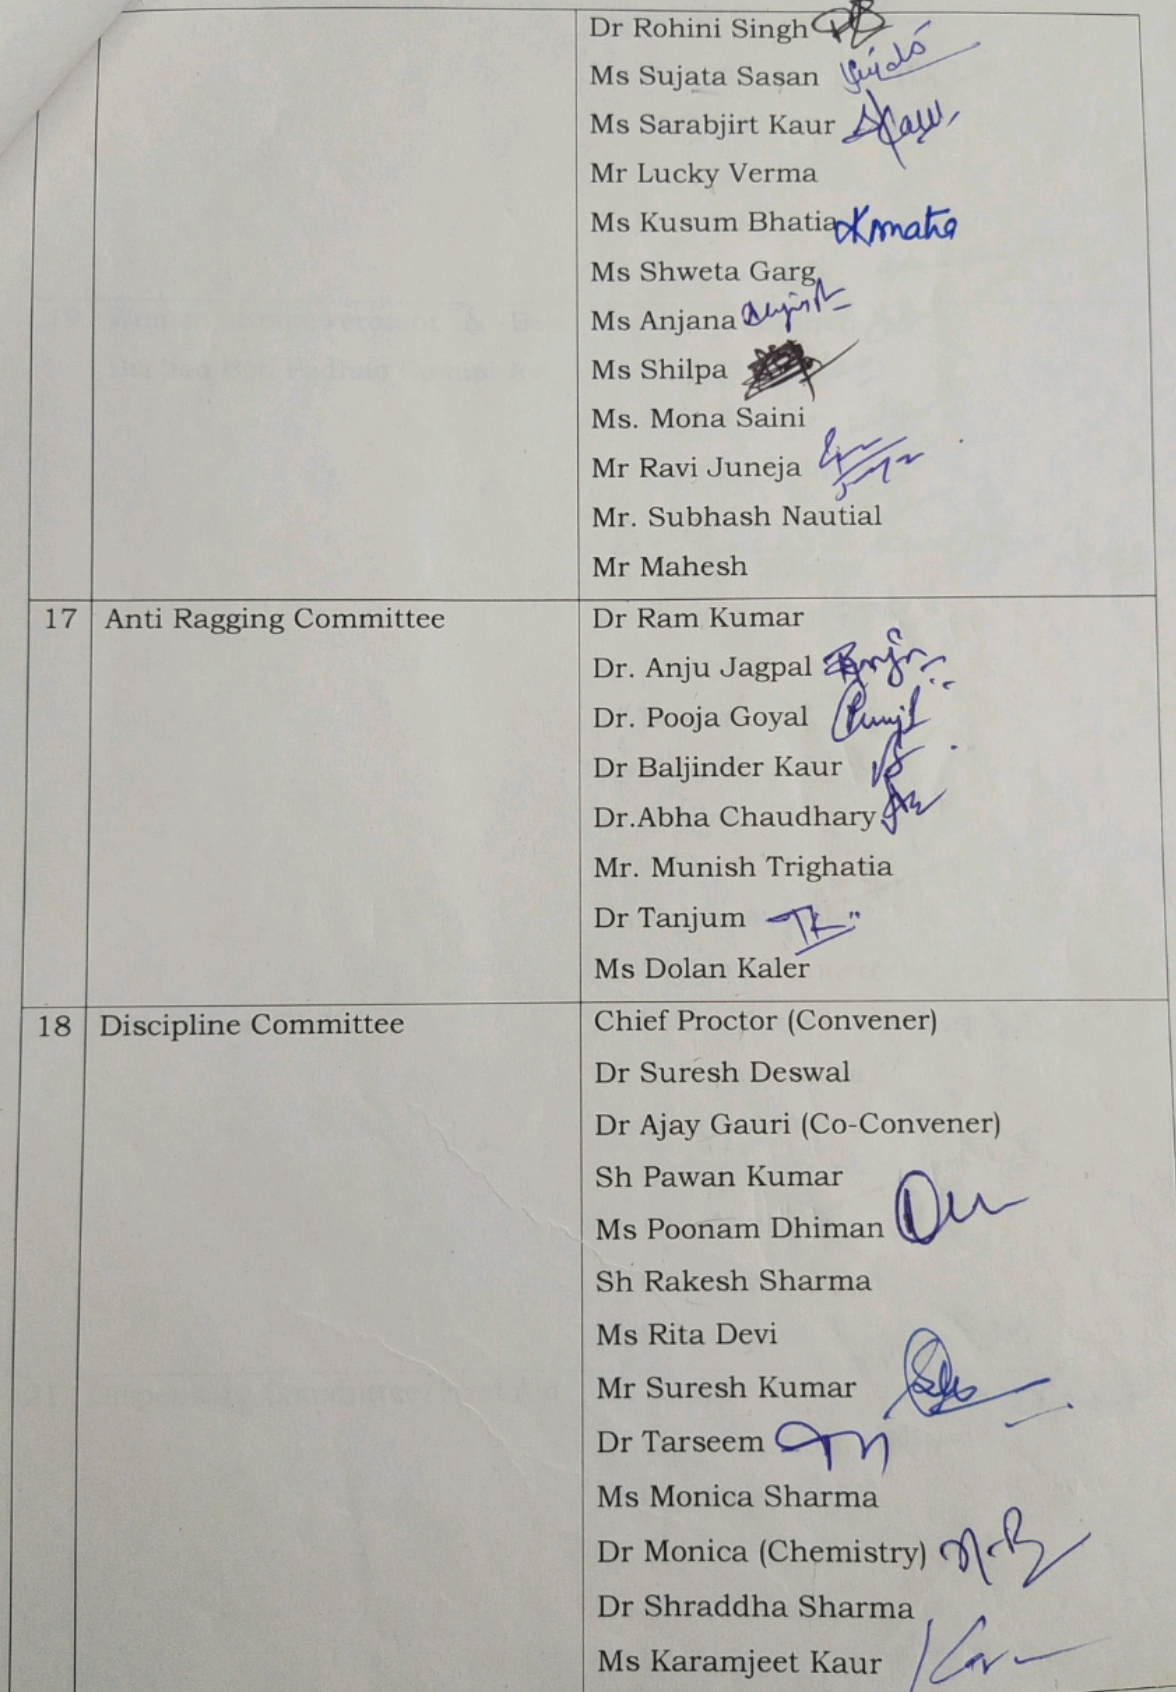 Dr Rohini Singh
Ms Sujata Sasan
Ms Sarabjirt Kaur
Mr Lucky Verma
Ms Kusum Bhatia
Ms Shweta Garg
Ms Anjana
Ms Shilpa
Ms. Mona Saini
Mr Ravi Juneja
Mr. Subhash Nautial
Mr Mahesh
17 Anti Ragging Committee Dr Ram Kumar
Dr. Anju Jagpal
Dr. Pooja Goyal
Dr Baljinder Kaur
Dr.Abha Chaudhary
Mr. Munish Trighatia
Dr Tanjum
Ms Dolan Kaler
18 Discipline Committee Chief Proctor (Convener)
Dr Suresh Deswal
Dr Ajay Gauri (Co-Convener)
Sh Pawan Kumar
Ms Poonam Dhiman
Sh Rakesh Sharma
Ms Rita Devi
Mr Suresh Kumar
Dr Tarseem
Ms Monica Sharma
Dr Monica (Chemistry)
Dr Shraddha Sharma
Ms Karamjeet Kaur